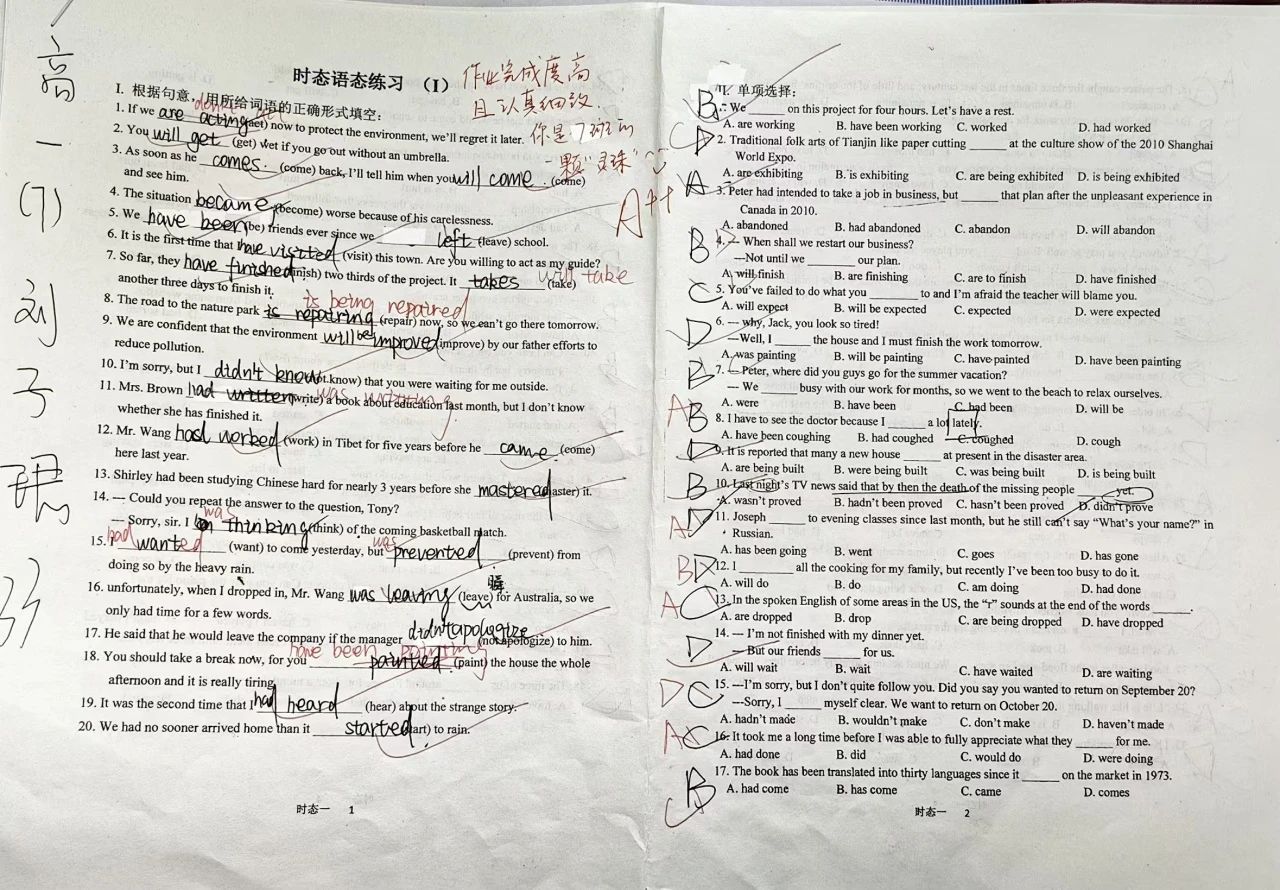 高一(7) 刘子
时态语态练习 （I）
作业完成度高
且认真细致.
你是7班的
一颗"灵珠"
A++
I. 根据句意，用所给词语的正确形式填空：
don't
1. If we are acting (act) now to protect the environment, we'll regret it later.
2. You will get (get) wet if you go out without an umbrella.
3. As soon as he comes. (come) back, I'll tell him when you will come. (come)
and see him.
4. The situation became (become) worse because of his carelessness.
5. We have been (be) friends ever since we left (leave) school.
6. It is the first time that have visited (visit) this town. Are you willing to act as my guide?
7. So far, they have finished (finish) two thirds of the project. It takes (take)
will take
another three days to finish it.
is being repaired
8. The road to the nature park is repairing (repair) now, so we can't go there tomorrow.
9. We are confident that the environment will be improved (improve) by our father efforts to
reduce pollution.
10. I'm sorry, but I didn't know (not know) that you were waiting for me outside.
was writting
11. Mrs. Brown had written (write) a book about education last month, but I don't know
whether she has finished it.
12. Mr. Wang had worked (work) in Tibet for five years before he came (come)
here last year.
13. Shirley had been studying Chinese hard for nearly 3 years before she mastered (master) it.
14. --- Could you repeat the answer to the question, Tony?
was
--- Sorry, sir. I thinking (think) of the coming basketball match.
had was
15. I wanted (want) to come yesterday, but prevented (prevent) from
doing so by the heavy rain.
16. unfortunately, when I dropped in, Mr. Wang was leaving (leave) for Australia, so we
only had time for a few words.
17. He said that he would leave the company if the manager didn't apologize (not apologize) to him.
have been painting
18. You should take a break now, for you painted (paint) the house the whole
afternoon and it is really tiring.
19. It was the second time that I had heard (hear) about the strange story.
20. We had no sooner arrived home than it started (start) to rain.
时态一 1
II. 单项选择：
B 1. We ______ on this project for four hours. Let's have a rest.
A. are working B. have been working C. worked D. had worked
C D 2. Traditional folk arts of Tianjin like paper cutting ______ at the culture show of the 2010 Shanghai
World Expo.
A. are exhibiting B. is exhibiting C. are being exhibited D. is being exhibited
A 3. Peter had intended to take a job in business, but ______ that plan after the unpleasant experience in
Canada in 2010.
A. abandoned B. had abandoned C. abandon D. will abandon
B 4. --- When shall we restart our business?
---Not until we ________ our plan.
A. will finish B. are finishing C. are to finish D. have finished
C 5. You've failed to do what you ________ to and I'm afraid the teacher will blame you.
A. will expect B. will be expected C. expected D. were expected
D 6. --- why, Jack, you look so tired!
---Well, I ______ the house and I must finish the work tomorrow.
A. was painting B. will be painting C. have painted D. have been painting
B 7. --- Peter, where did you guys go for the summer vacation?
--- We ______ busy with our work for months, so we went to the beach to relax ourselves.
A. were B. have been C. had been D. will be
A B 8. I have to see the doctor because I ______ a lot lately.
A. have been coughing B. had coughed C. coughed D. cough
D 9. It is reported that many a new house ______ at present in the disaster area.
A. are being built B. were being built C. was being built D. is being built
B 10. Last night's TV news said that by then the death of the missing people ______ yet.
A. wasn't proved B. hadn't been proved C. hasn't been proved D. didn't prove
A D 11. Joseph ______ to evening classes since last month, but he still can't say "What's your name?" in
Russian.
A. has been going B. went C. goes D. has gone
B D 12. I ________ all the cooking for my family, but recently I've been too busy to do it.
A. will do B. do C. am doing D. had done
A C 13. In the spoken English of some areas in the US, the "r" sounds at the end of the words ______.
A. are dropped B. drop C. are being dropped D. have dropped
D 14. --- I'm not finished with my dinner yet.
--- But our friends ______ for us.
A. will wait B. wait C. have waited D. are waiting
D C 15. ---I'm sorry, but I don't quite follow you. Did you say you wanted to return on September 20?
---Sorry, I ______ myself clear. We want to return on October 20.
A. hadn't made B. wouldn't make C. don't make D. haven't made
A C 16. It took me a long time before I was able to fully appreciate what they ______ for me.
A. had done B. did C. would do D. were doing
B 17. The book has been translated into thirty languages since it ______ on the market in 1973.
A. had come B. has come C. came D. comes
时态一 2